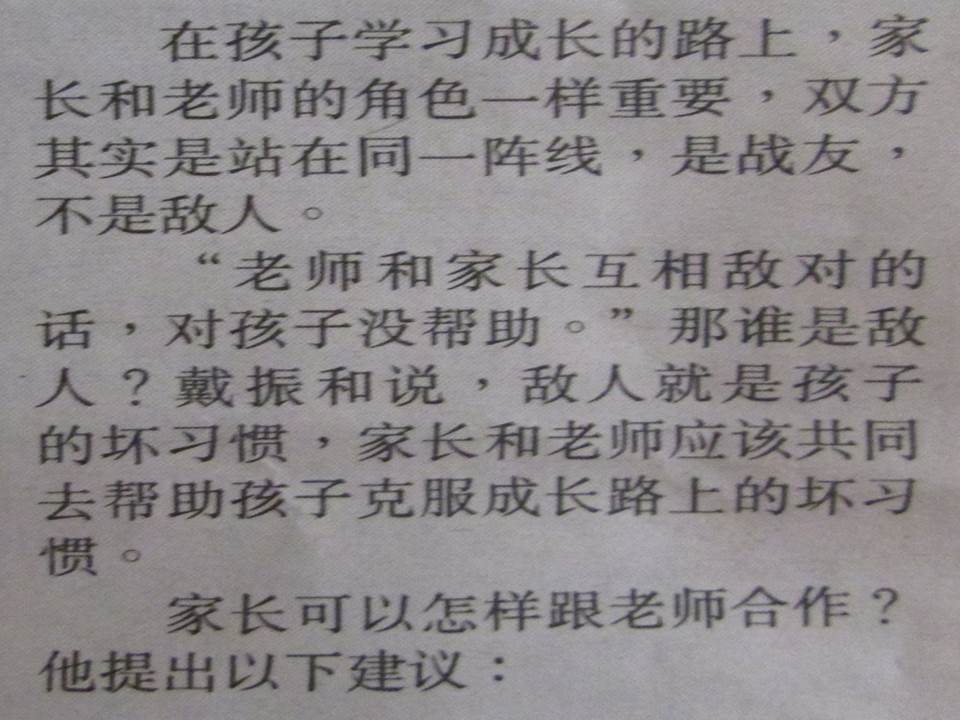 在孩子学习成长的路上，家
长和老师的角色一样重要，双方
其实是站在同一阵线，是战友，
不是敌人。
“老师和家长互相敌对的
话，对孩子没帮助。”那谁是敌
人？戴振和说，敌人就是孩子
的坏习惯，家长和老师应该共同
去帮助孩子克服成长路上的坏习
惯。
家长可以怎样跟老师合作？
他提出以下建议：